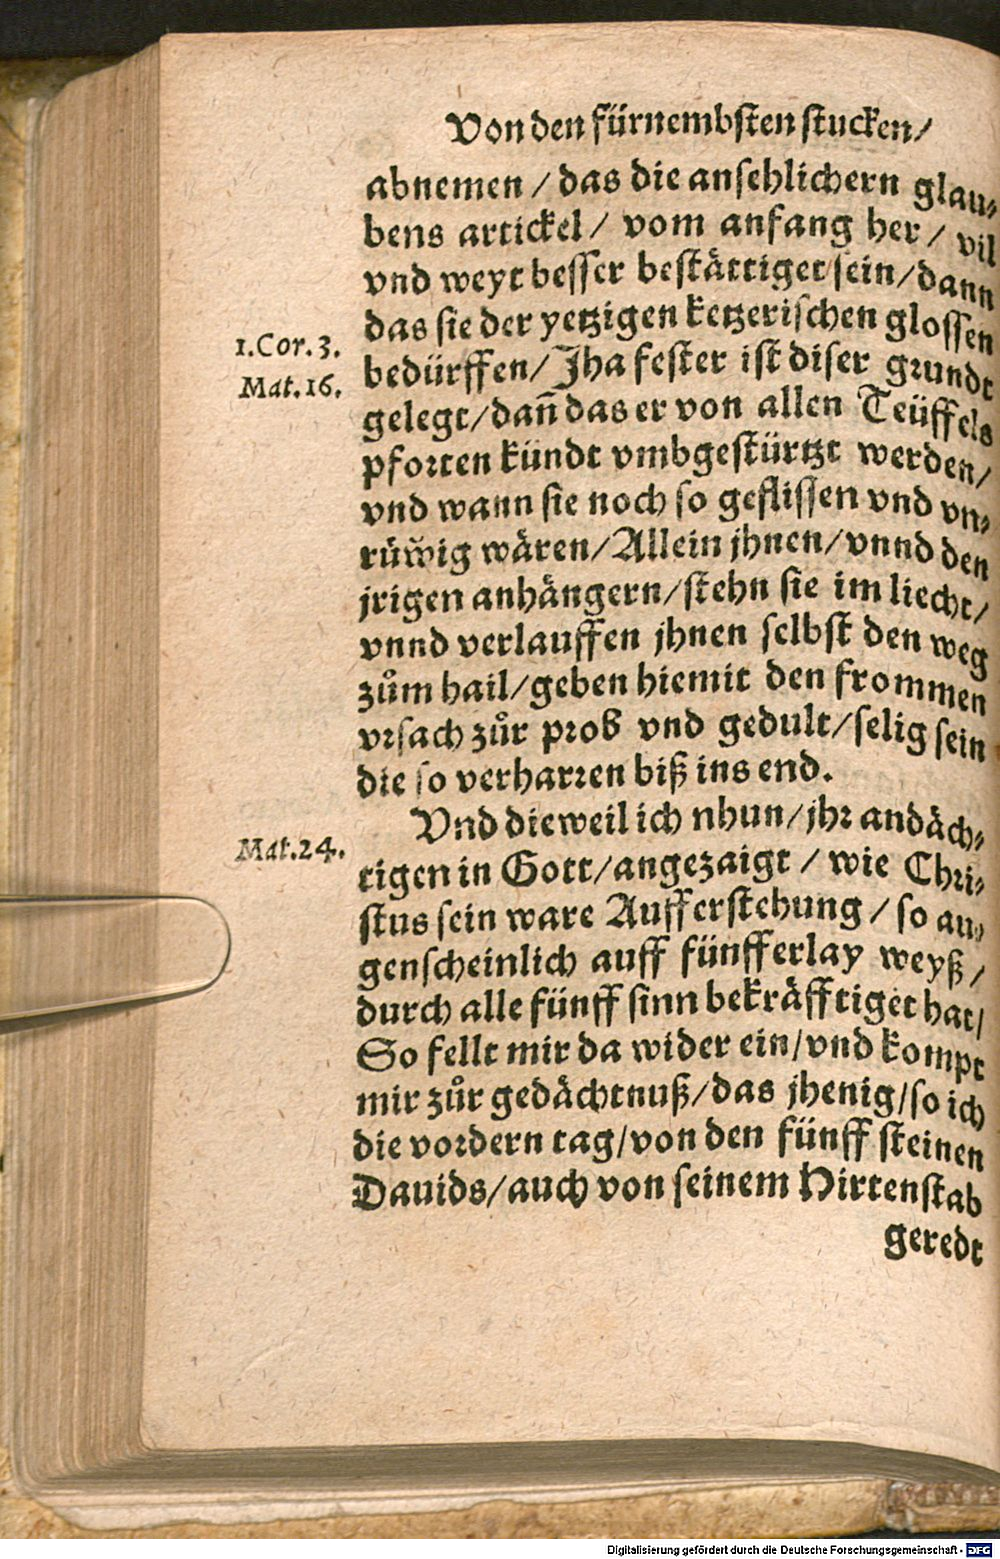 Von den fürnembsten stucken/
abnemen / das die ansehlichern glau⸗
bens artickel / vom anfang her / vil
vnd weyt besser bestättiget sein / dann
das sie der yetzigen ketzerischen glossen
1.Cor.3.
bedürffen / Jha fester ist diser grundt
Mat.16.
gelegt / dañ das er von allen Teüffels
pforten kündt vmbgestürtzt werden /
vnd wann sie noch so geflissen vnd vn⸗
rüwig wären / Allein jhnen / vnnd den
jrigen anhängern / stehn sie im liecht /
vnnd verlauffen jhnen selbst den weg
zům hail / geben hiemit den frommen
vrsach zůr prob vnd gedult / selig sein
die so verharren biß ins end.
Vnd dieweil ich nhun / jhr andäch⸗
Mat.24.
tigen in Gott / angezaigt / wie Chri⸗
stus sein ware Aufferstehung / so au⸗
genscheinlich auff fünfferlay weyß /
durch alle fünff sinn bekräfftiget hat /
So fellt mir da wider ein / vnd kompt
mir zůr gedächtnuß / das jhenig / so ich
die vordern tag / von den fünff steinen
Dauids / auch von seinem Hirtenstab
geredt
Digitalisierung gefördert durch die Deutsche Forschungsgemeinschaft - DFG